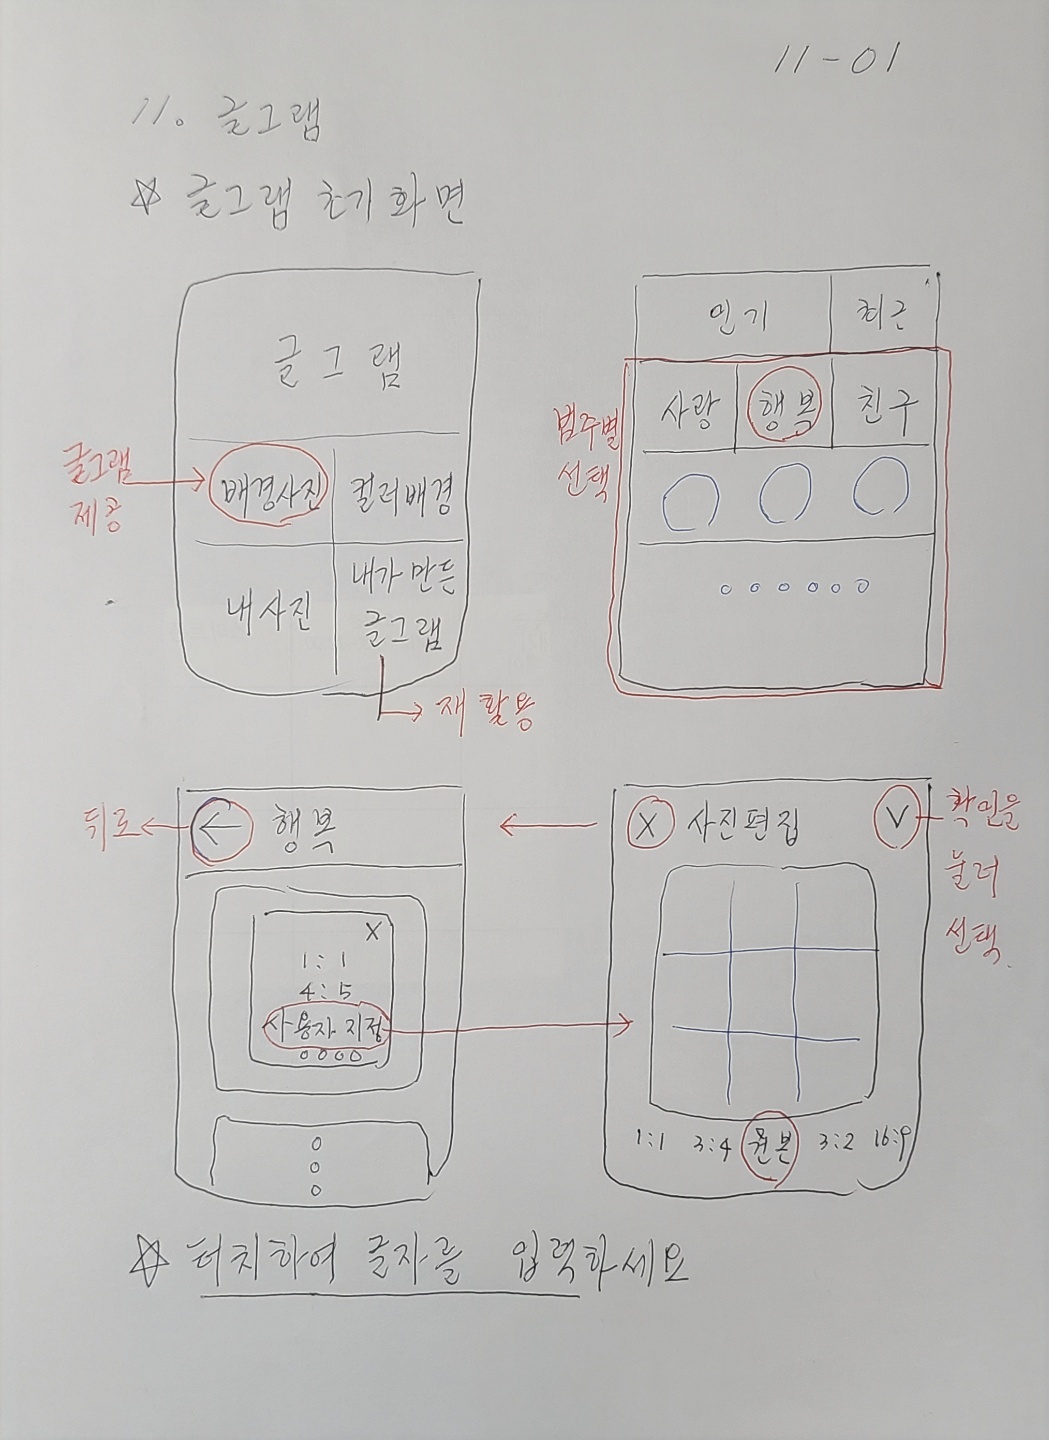 11-01
11. 글그램
☆ 글그램 초기화면
글그램
글그램
제공
배경사진
컬러배경
내사진
내가 만든
글그램
재활용
인기
최근
범주별
선택
사랑
행복
친구
뒤로
← 행복
X
1:1
4:5
사용자 지정
X 사진편집 V
확인을
눌러
선택.
1:1 3:4 원본 3:2 16:9
☆ 터치하여 글자를 입력하세요